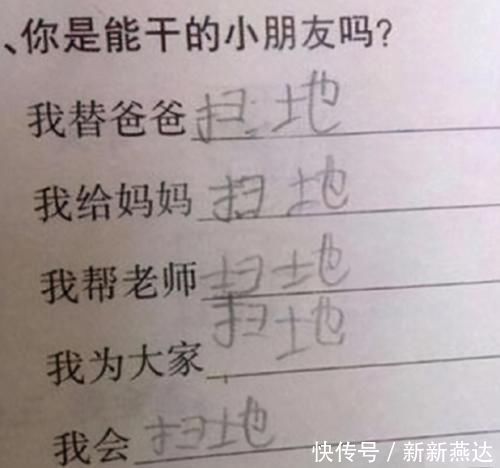 、你是能干的小朋友吗?
我替爸爸扫地
我给妈妈扫地
我帮老师扫地
我为大家扫地
我会扫地
快传号/新新燕达